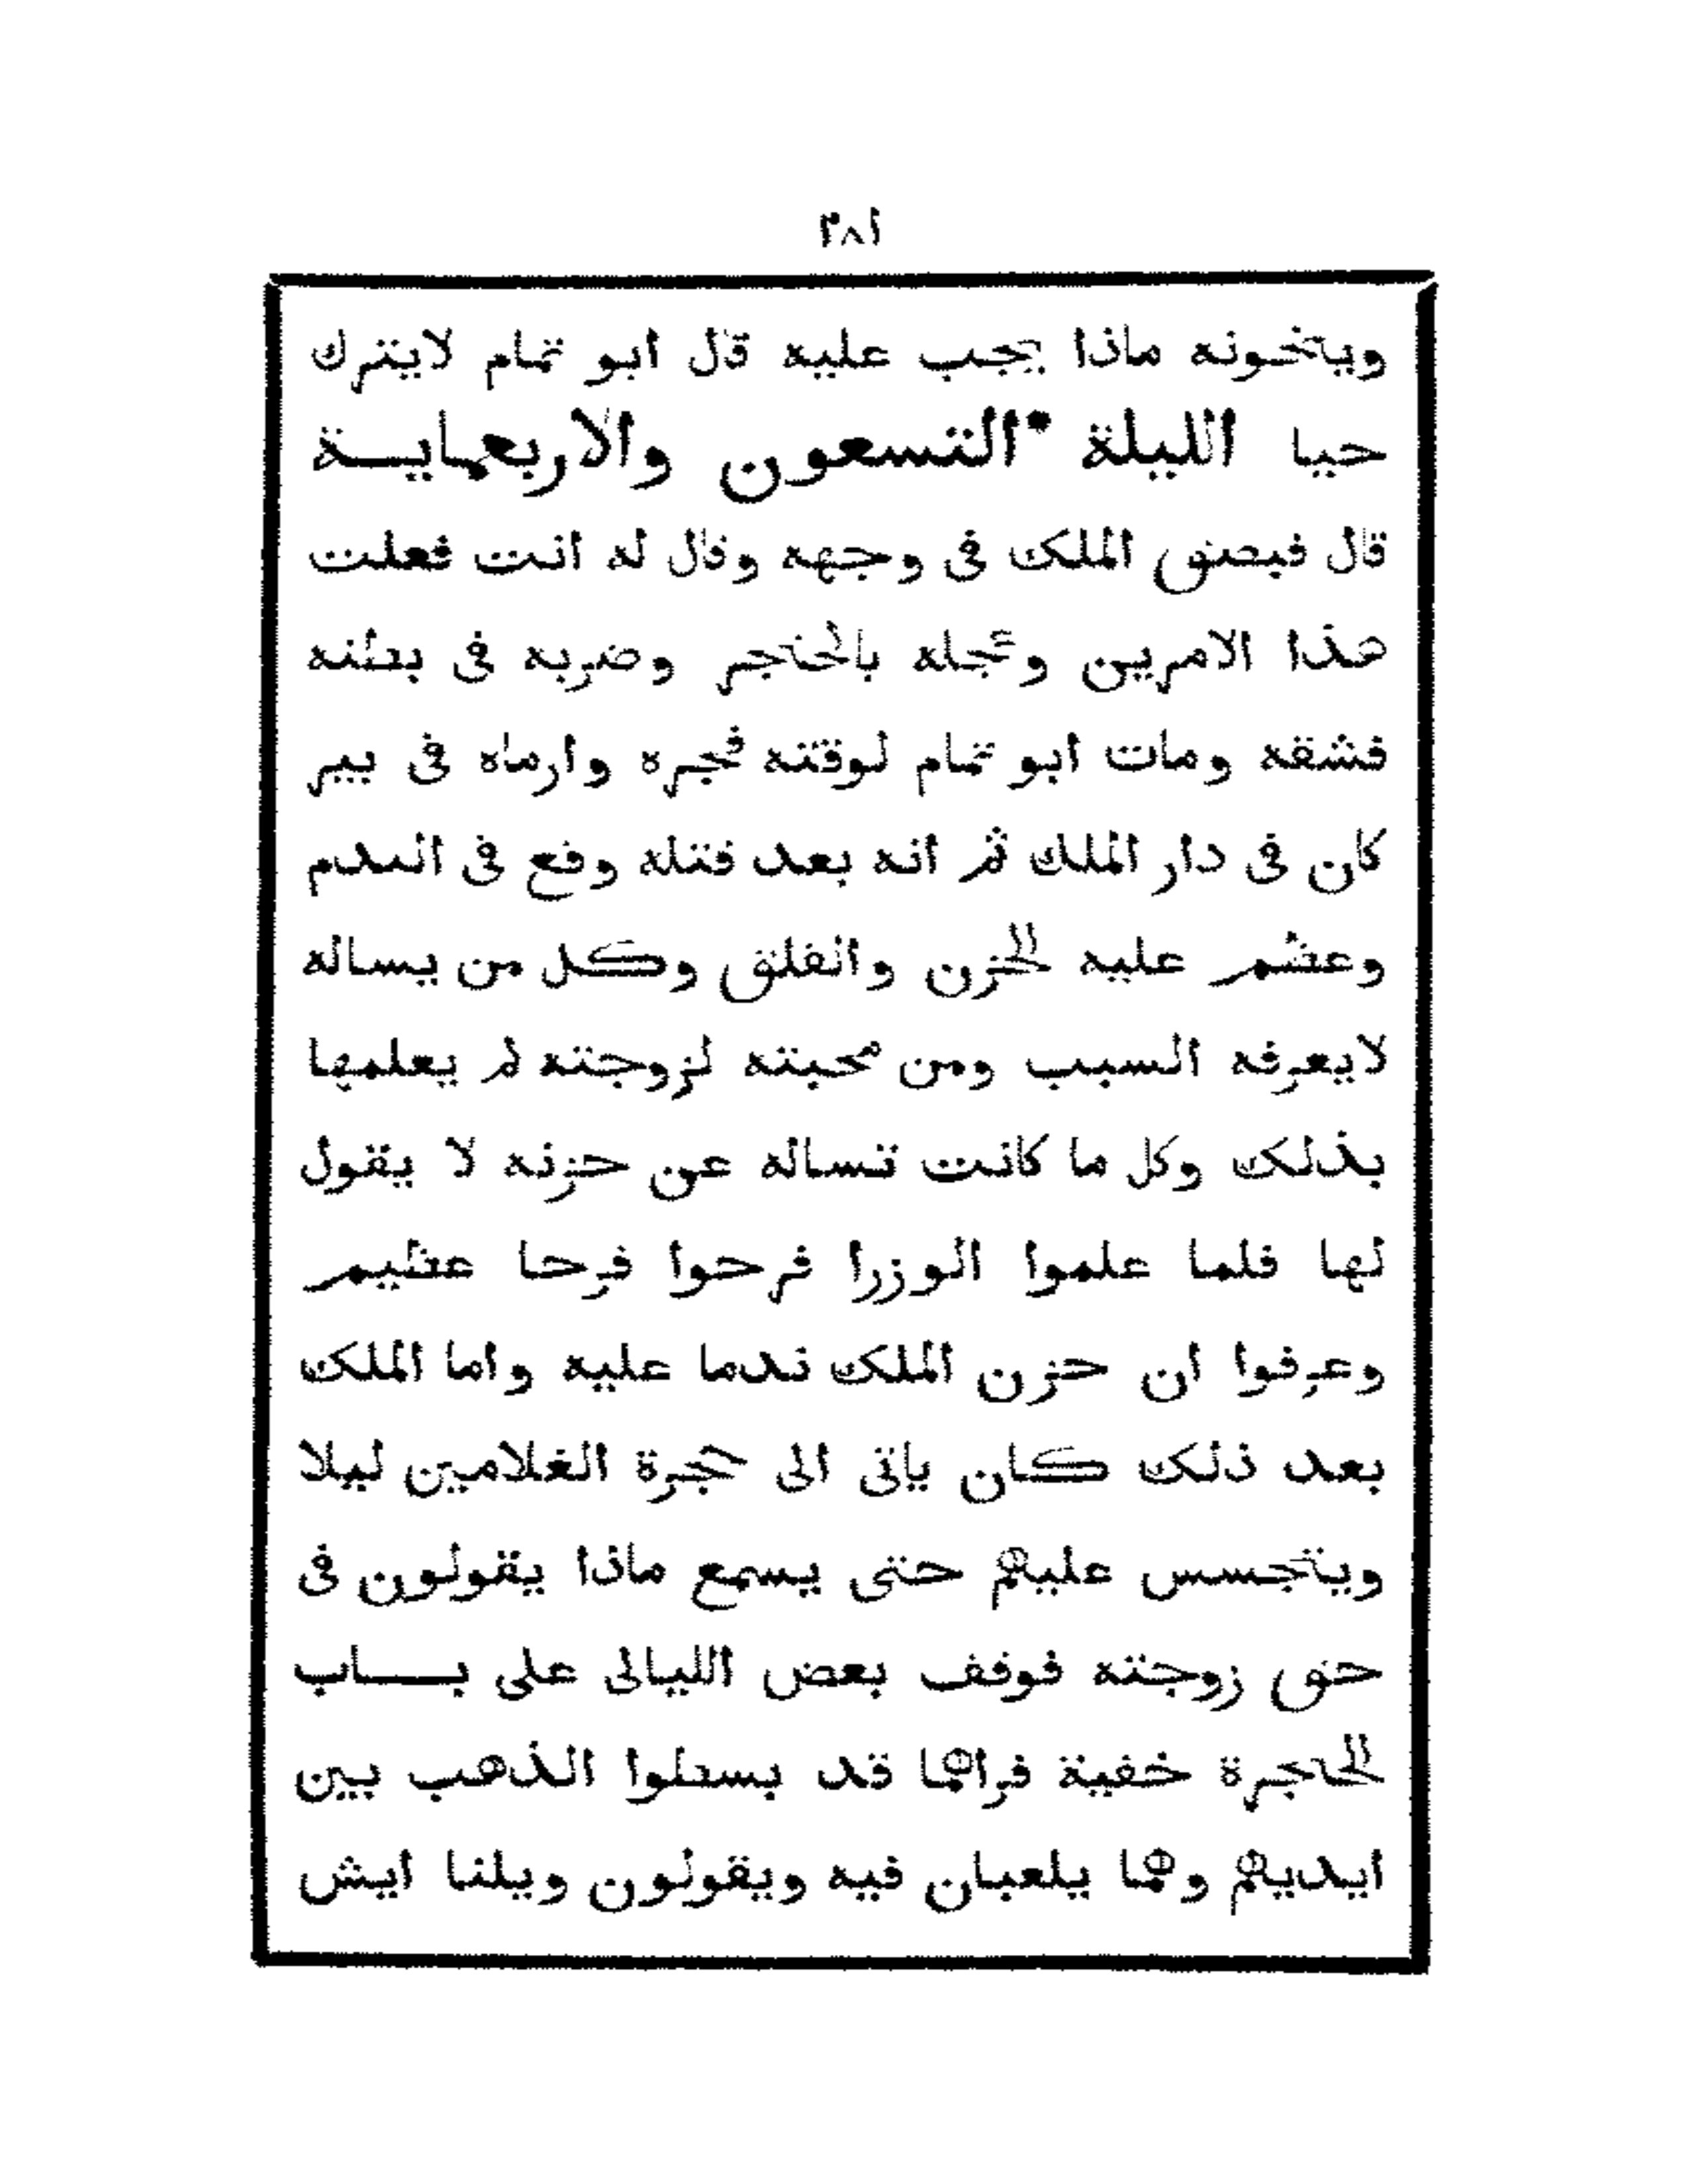 ٢٨١
ويتخونه ماذا يجب عليه قال ابو تمام لايترك
حيا الليلة التسعون والاربعماية
قال فبصق الملك فى وجهه وقال له انت فعلت
هذا الامرين وعجله بالخنجر وضربه فى بطنه
فشقه ومات ابو تمام لوقته فجره وارماه فى بير
كان فى دار الملك ثم انه بعد قتله وقع فى الندم
وعظم عليه الحزن والقلق وكل من يساله
لايعرفه السبب ومن محبته لزوجته لم يعلمها
بذلك وكل ما كانت تساله عن حزنه لا يقول
لها فلما علموا الوزرا فرحوا فرحا عظيم
وعرفوا ان حزن الملك ندما عليه واما الملك
بعد ذلك كان ياتى الى حجرة الغلامين ليلا
ويتجسس عليهم حتى يسمع ماذا يقولون فى
حق زوجته فوقف بعض الليالى على باب
الحجرة خفية فراهما قد بسطوا الذهب بين
ايديهم وهما يلعبان فيه ويقولون ويلنا ايش